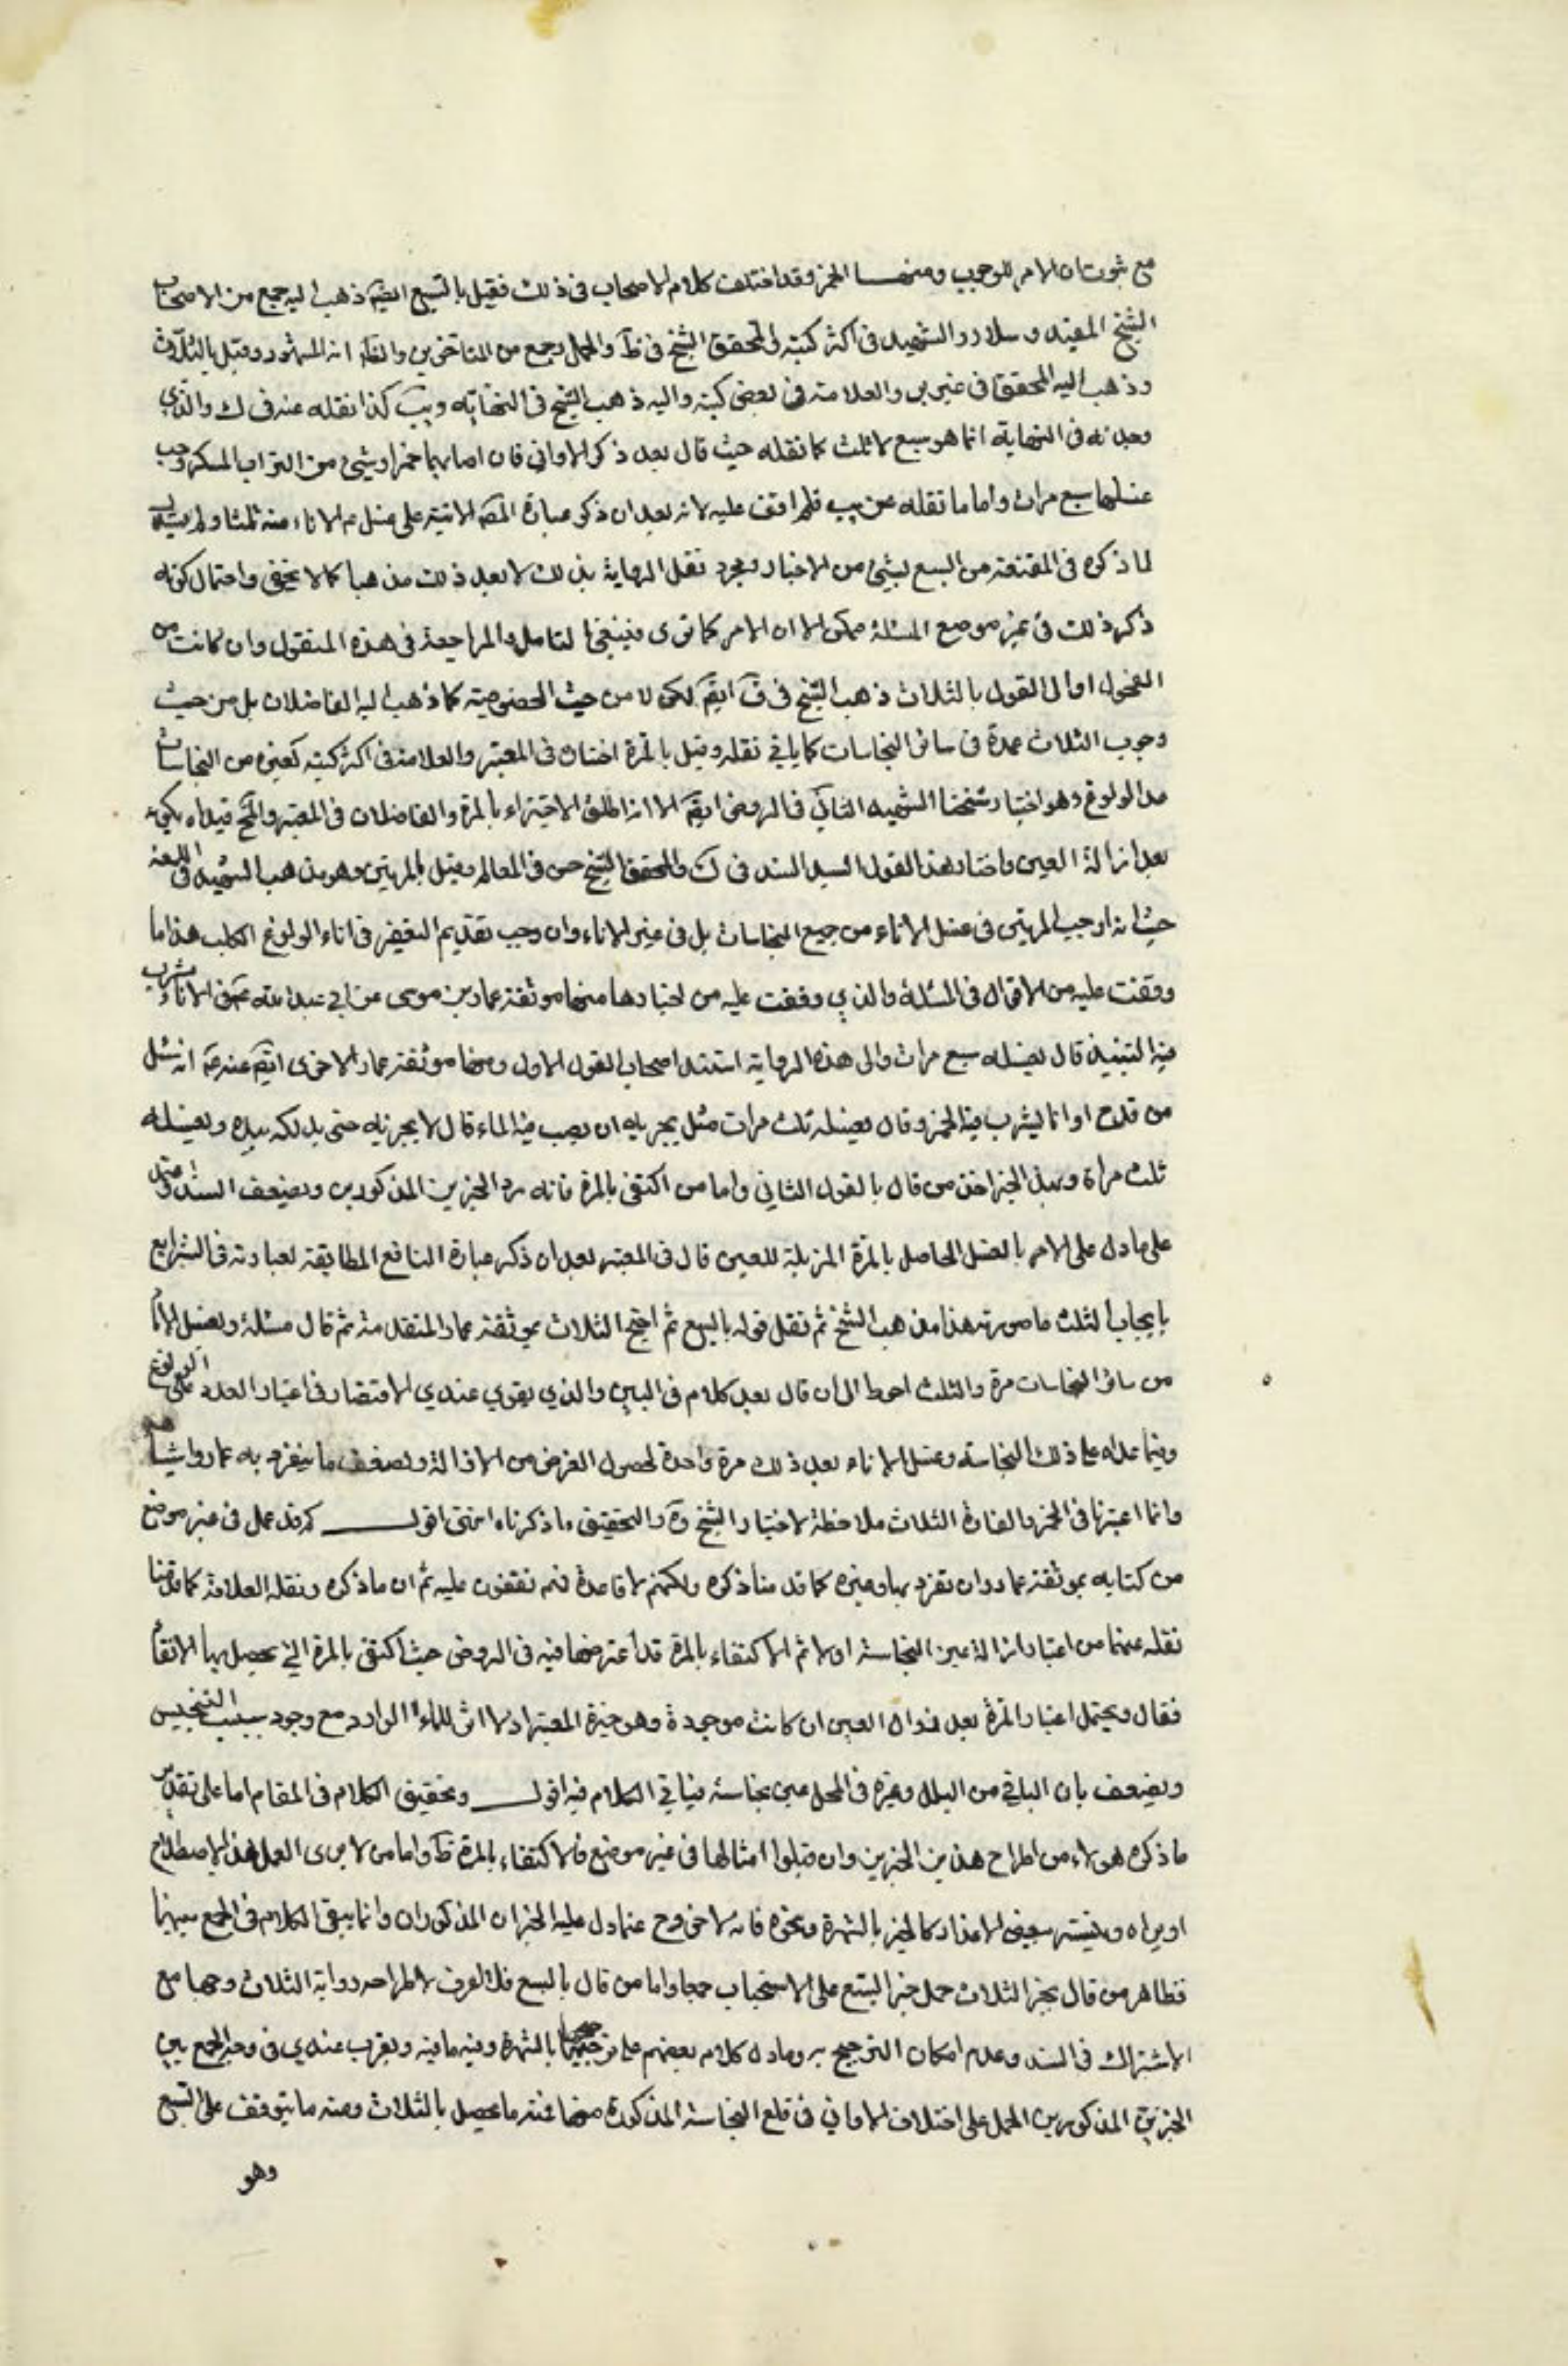 مع ثبوت ان الامر للوجوب ومنها الخمر وقد اختلف كلام الاصحاب فى ذلك فقيل بالسبع ايضَا ذهب اليه جمع من الاصحاب
الشيخ المفيد وسلار والشهيد فى اكثر كتبه والمحقق الشيخ فى ظَ والجمل وجمع من المتاخرين والظَ انه المشهور وقيل بالثلاث
وذهب اليه المحقق فى غير بن والعلامة فى بعض كتبه واليه ذهب الشيخ فى النهاية ويب كذا نقله عنه فى ك والذى
وجدته فى النهاية انما هو سبع لا ثلث كما نقله حيث قال بعد ذكر الاوانى فان اصابها خمر او شىء من الشراب المسكر وجب
غسلها سبع مرات واما ما نقله عن يب فلم اقف عليه لانه بعد ان ذكر عبارة المقَ الاتية على غسل الاناء منه ثلثا ولم يستدل
لما ذكره فى المقنعة من السبع بشىء من الاخبار ومجرد نقل الرواية بذلك لا يعد ذلك مذهبا كما لا يخفى واحتمال كونه
ذكر ذلك فى غير موضع المسئلة ممكن الا ان الامر كما ترى فينبغى التامل والمراجعة فى هذه النقول وان كانت من
الفحول اوالى القول بالثلاث ذهب الشيخ فى فَ ايضَ لكن لا من حيث الخصوصية كما ذهب اليه الفاضلان بل من حيث
وجوب الثلاث عمدة فى سائر النجاسات كما ياتى نقله وقيل بالمرة اختاره فى المعتبر والعلامة فى اكثر كتبه كغيره من النجاسات
عدا الولوغ وهو اختيار شيخنا الشهيد الثانى فى الروض ايضَ الا انه اطلق الاجتزاء بالمرة والفاضلان فى المعتبر والمَح قيداه بكونه
بعد ازالة العين واختار هذا القول السيد السند فى ك والمحقق الشيخ حسن فى المعالم وقيل بالمرتين وهو مذهب الشهيد فى اللمعة
حيث انه اوجب المرتين فى غسل الاناء من جميع النجاسات بل فى غير الاناء وان وجب تقديم التعفير فى اناء الولوغ الكلب هذا ما
وقفت عليه من الاقوال فى المسئلة والذي وقفت عليه من اخبارها منها موثقة عمار بن موسى عن ابي عبد الله عَ فى الاناء يشرب
فيه النبيذ قال يغسله سبع مرات والى هذه الرواية استند اصحاب القول الاول ومنها موثقة عمار الاخرى ايضَ عنه عَ انه سئل
من قدح او انا يشرب فيه الخمر وقال يغسله ثلث مرات سئل يجزيه ان يصب فيه الماء قال لا يجزيه حتى يدلكه بيده ويغسله
ثلث مراة وبهذا الخبر اخذ من قال بالقول الثاني واما من اكتفى بالمرة فانه رد الخبرين المذكورين وبضعف السند
على ما دل على الامر بالغسل الحاصل بالمرة المزيلة للعين قال فى المعتبر بعد ان ذكر عبارة النافع المطابقة لعبارته فى الشرايع
بايجاب الثلث ما صورته هذا مذهب الشيخ ثم نقل قوله بالسبع ثم احتج الثلاث بموثقة عمار المتقدمة ثم قال مسئلة ويغسل الانا
من سائر النجاسات مرة والثلث احوط الى ان قال بعد كلام فى البين والذي يقوي عندي الاقتصار فى اعتبار العدد على الولوغ
وفيما عداه على ذلك النجاسة وغسل الاناء بعد ذلك مرة واحدة لحصول الغرض من الازالة ولضعف ما ينفرد به عمار واشباهه
وانما اعتبرنا فى الخمر والفارة الثلاث ملاحظة لاختيار الشيخ رَه والتحقيق ما ذكرناه انتهى اقول كم قد عمل فى غير موضع
من كتابه بموثقة عمار وان تفرد بها وغيره كما قدمنا ذكره ولكنهم لا قاعدة لهم تقفون عليه ثم ان ما ذكره ونقله العلامة كما قدمنا
نقله عنهما من اعتبار ازالة عين النجاسة اولا ثم الاكتفاء بالمرة قد اعترضها فيه فى الروض حيث اكتفى بالمرة التي يحصل بها الانقاء
فقال ويحتمل اعتبار المرة بعد زوال العين ان كانت موجودة وهو خيرة المعتبر اذ لا اثر للماء الوارد مع وجود سبب التنجيس
ويضعف بان الباقي من البلل وغيره فى المحل عين نجاسة فياتي الكلام فيه اقول وتحقيق الكلام فى المقام اما على تقدير
ما ذكره هولاء من اطراح هذين الخبرين وان قبلوا امثالها فى غير موضع فالاكتفاء بالمرة ظَ واما من لا يرى العمل بهذا الاصطلاح
او يراه ويفسره ببعض الاعذار كالخبر بالشهرة ونحوه فانه لا خروج عما دل عليه الخبران المذكوران وانما يبقى الكلام فى الجمع بينهما
فظاهر من قال بخبر الثلاث حمل خبر السبع على الاستحباب جمعا واما من قال بالسبع فلا اعرف لاطراحه رواية الثلاث وجها مع
الاشتراك فى السند وعدم امكان الترجيح به وما دل كلام بعضهم على ترجيحها بالشهرة وفيه ما فيه ويقرب عندي فى وجه الجمع بين
الخبرين المذكورين الحمل على اختلاف الاوانى فى قلع النجاسة المذكورة منها فمنه ما يحصل بالثلاث ومنه ما يتوقف على السبع
وهو